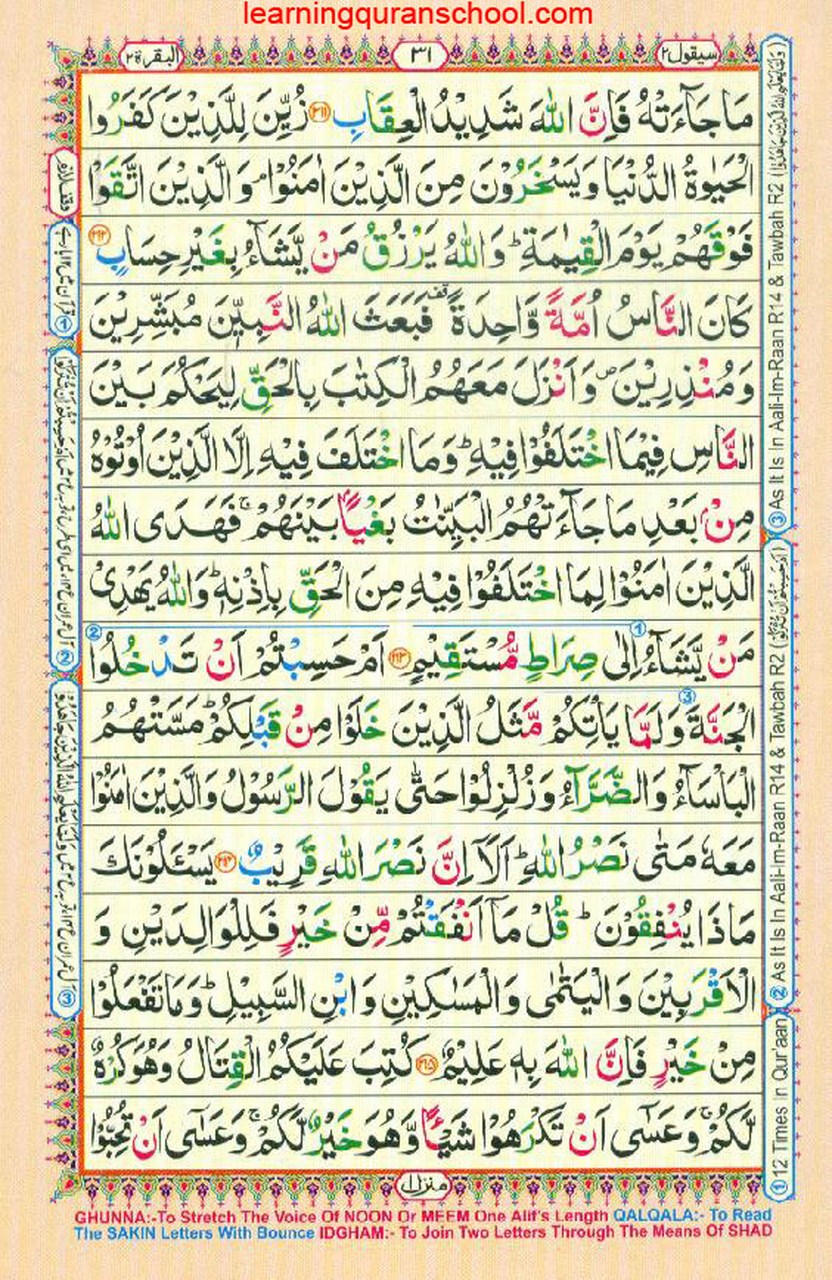 learningquranschool.com
البقرة ٢
٣١
سيقول ٢
مَا جَآءَتْهُ فَاِنَّ اللّٰهَ شَدِيْدُ الْعِقَابِ ﴿۲۱۱﴾ زُيِّنَ لِلَّذِيْنَ كَفَرُوا
الْحَيٰوةُ الدُّنْيَا وَيَسْخَرُوْنَ مِنَ الَّذِيْنَ اٰمَنُوْا ۘ وَالَّذِيْنَ اتَّقَوْا
فَوْقَهُمْ يَوْمَ الْقِيٰمَةِ ؕ وَاللّٰهُ يَرْزُقُ مَنْ يَّشَآءُ بِغَيْرِ حِسَابٍ ﴿۲۱۲﴾
كَانَ النَّاسُ اُمَّةً وَّاحِدَةً ۟ فَبَعَثَ اللّٰهُ النَّبِيّٖنَ مُبَشِّرِيْنَ
وَمُنْذِرِيْنَ ۪ وَاَنْزَلَ مَعَهُمُ الْكِتٰبَ بِالْحَقِّ لِيَحْكُمَ بَيْنَ
النَّاسِ فِيْمَا اخْتَلَفُوْا فِيْهِ ؕ وَمَا اخْتَلَفَ فِيْهِ اِلَّا الَّذِيْنَ اُوْتُوْهُ
مِنْۢ بَعْدِ مَا جَآءَتْهُمُ الْبَيِّنٰتُ بَغْيًاۢ بَيْنَهُمْ ۚ فَهَدَى اللّٰهُ
الَّذِيْنَ اٰمَنُوْا لِمَا اخْتَلَفُوْا فِيْهِ مِنَ الْحَقِّ بِاِذْنِهٖ ؕ وَاللّٰهُ يَهْدِيْ
مَنْ يَّشَآءُ اِلٰى صِرَاطٍ مُّسْتَقِيْمٍ ﴿۲۱۳﴾ اَمْ حَسِبْتُمْ اَنْ تَدْخُلُوا
الْجَنَّةَ وَلَمَّا يَاْتِكُمْ مَّثَلُ الَّذِيْنَ خَلَوْا مِنْ قَبْلِكُمْ ؕ مَسَّتْهُمُ
الْبَاْسَآءُ وَالضَّرَّآءُ وَزُلْزِلُوْا حَتّٰى يَقُوْلَ الرَّسُوْلُ وَالَّذِيْنَ اٰمَنُوْا
مَعَهٗ مَتٰى نَصْرُ اللّٰهِ ؕ اَلَاۤ اِنَّ نَصْرَ اللّٰهِ قَرِيْبٌ ﴿۲۱۴﴾ يَسْـَٔلُوْنَكَ
مَاذَا يُنْفِقُوْنَ ؕ قُلْ مَاۤ اَنْفَقْتُمْ مِّنْ خَيْرٍ فَلِلْوَالِدَيْنِ وَ
الْاَقْرَبِيْنَ وَالْيَتٰمٰى وَالْمَسٰكِيْنِ وَابْنِ السَّبِيْلِ ؕ وَمَا تَفْعَلُوْا
مِنْ خَيْرٍ فَاِنَّ اللّٰهَ بِهٖ عَلِيْمٌ ﴿۲۱۵﴾ كُتِبَ عَلَيْكُمُ الْقِتَالُ وَهُوَ كُرْهٌ
لَّكُمْ ۚ وَعَسٰۤى اَنْ تَكْرَهُوْا شَيْـًٔا وَّهُوَ خَيْرٌ لَّكُمْ ۚ وَعَسٰۤى اَنْ تُحِبُّوْا
منزل ١
③ As It Is In Aali-Im-Raan R14 & Tawbah R2
② As It Is In Aali-Im-Raan R14 & Tawbah R2
① 12 Times In Qur'aan
GHUNNA:-To Stretch The Voice Of NOON Or MEEM One Alif's Length QALQALA:- To Read
The SAKIN Letters With Bounce IDGHAM:- To Join Two Letters Through The Means Of SHAD